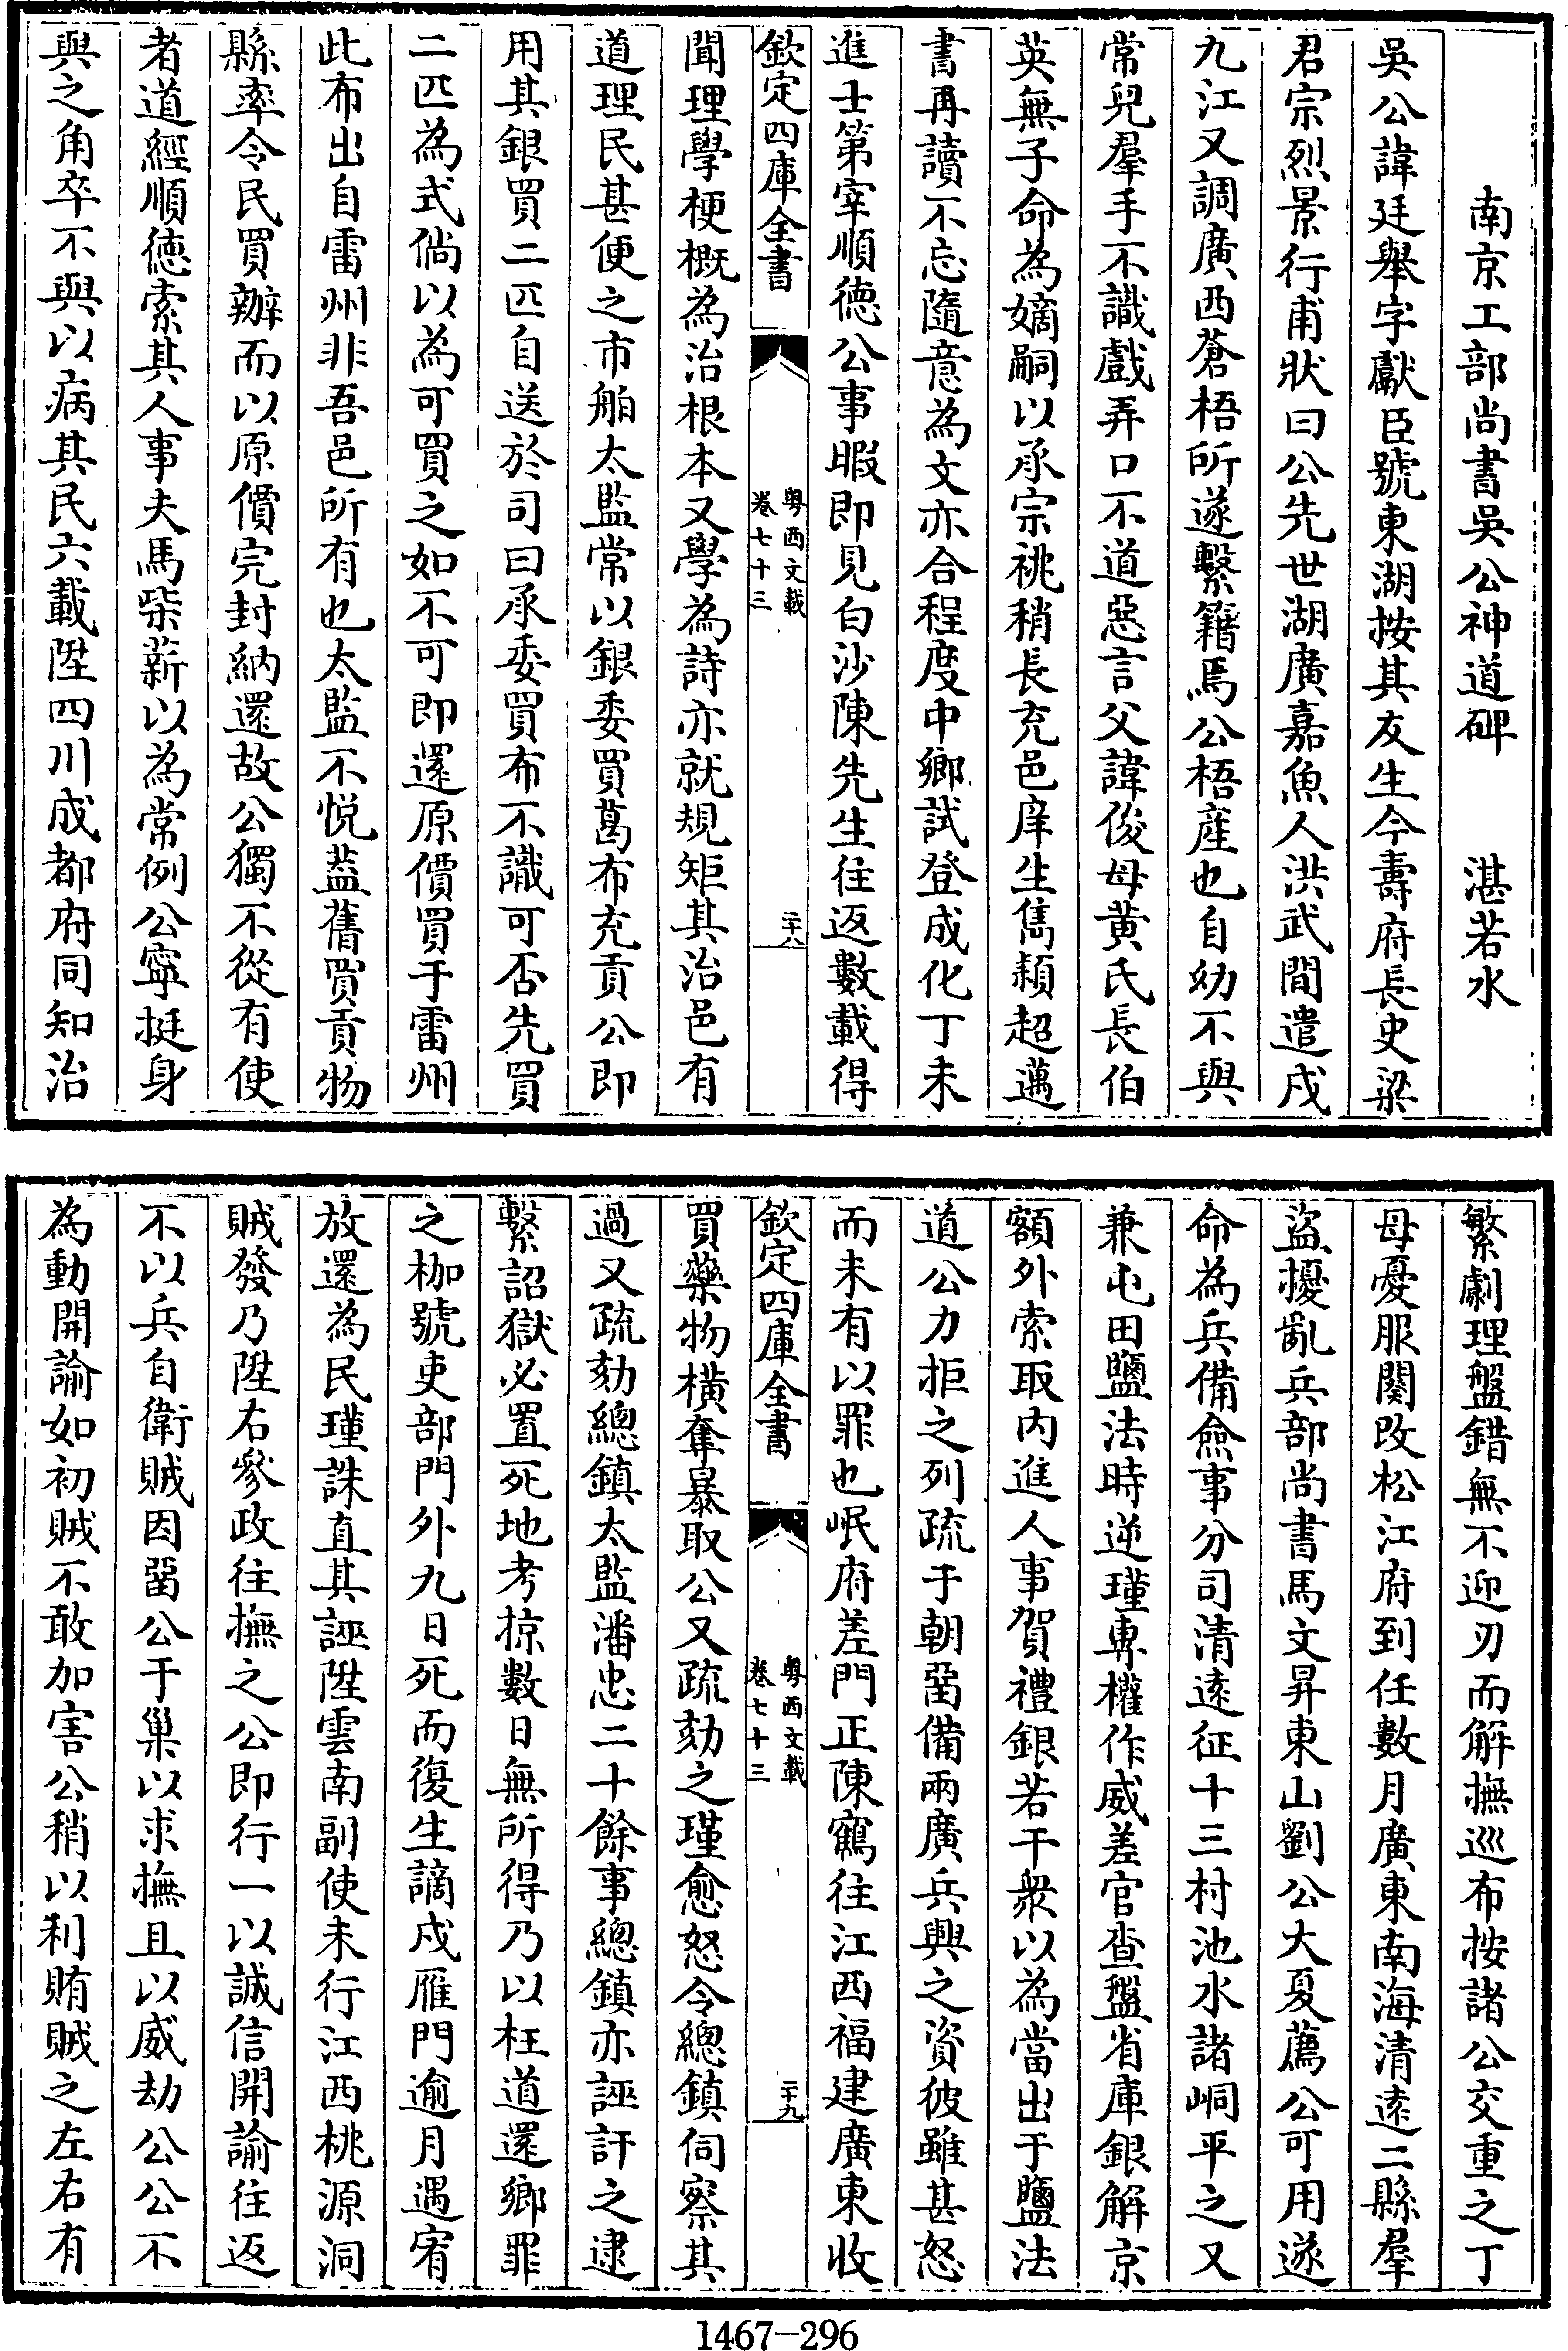 南京工部尚書吳公神道碑　湛若水
吳公諱廷舉字獻臣號東湖按其友生今壽府長史梁
君宗烈景行甫狀曰公先世湖廣嘉魚人洪武間遣戍
九江又調廣西蒼梧所遂繫籍焉公梧產也自幼不與
常兒羣手不識戲弄口不道惡言父諱俊母黄氏長伯
英無子命為嫡嗣以承宗祧稍長充邑庠生雋穎超邁
書再讀不忘隨意為文亦合程度中鄉試登成化丁未
進士第宰順德公事暇即見白沙陳先生往返數載得
欽定四庫全書
粤西文載
卷七十三
二十八
聞理學梗概為治根本又學為詩亦就規矩其治邑有
道理民甚便之市舶太監常以銀委買葛布充貢公即
用其銀買二匹自送於司曰承委買布不識可否先買
二匹為式倘以為可買之如不可即還原價買于雷州
此布出自雷州非吾邑所有也太監不悦葢舊買貢物
縣率令民買辦而以原價完封納還故公獨不從有使
者道經順德索其人事夫馬柴薪以為常例公寧挺身
與之角卒不與以病其民六載陞四川成都府同知治
繁劇理盤錯無不迎刃而解撫巡布按諸公交重之丁
母憂服闋改松江府到任數月廣東南海清遠二縣羣
盜擾亂兵部尚書馬文昇東山劉公大夏薦公可用遂
命為兵備僉事分司清遠征十三村池水諸峒平之又
兼屯田鹽法時逆瑾專權作威差官查盤省庫銀解京
額外索取内進人事賀禮銀若干衆以為當出于鹽法
道公力拒之列疏于朝畱備兩廣兵興之資彼雖甚怒
而未有以罪也岷府差門正陳鶴往江西福建廣東收
欽定四庫全書
粤西文載
卷七十三
二十九
買藥物横奪暴取公又疏劾之瑾愈怒令總鎮伺察其
過又疏劾總鎮太監潘忠二十餘事總鎮亦誣訐之逮
繫詔獄必置死地考掠數日無所得乃以枉道還鄉罪
之枷號吏部門外九日死而復生謫戍雁門逾月遇宥
放還為民瑾誅直其誣陞雲南副使未行江西桃源洞
賊發乃陞右參政往撫之公即行一以誠信開諭往返
不以兵自衛賊因畱公于巢以求撫且以威劫公公不
為動開諭如初賊不敢加害公稍以利賄賊之左右有
1467—296